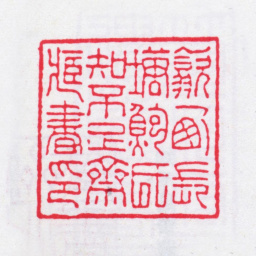 歙西長
塘鮑氏
知不足齋
藏書印